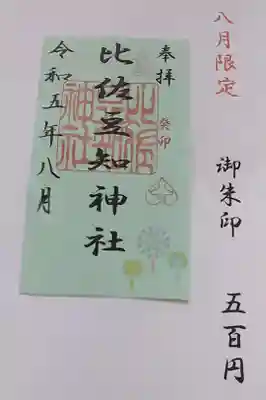 八月限定
御朱印 五百円
奉拝
癸卯
比佐豆知神社
令和五年八月